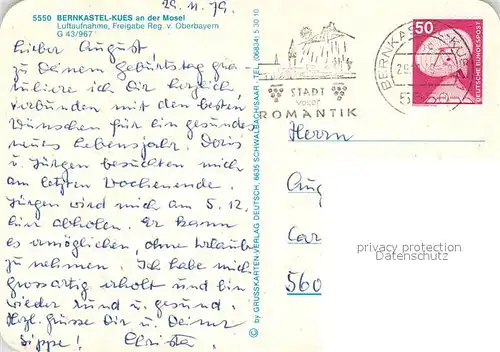 29.11.79.
5550 BERNKASTEL-KUES an der Mosel
Luftaufnahme, Freigabe Reg. v. Oberbayern
G 43/967
Lieber August
zu Deinem Geburtstag gra-
tuliere ich Dir herzlich
verbunden mit den besten
Wünschen für ein gesundes
neues Lebensjahr. Doris
u. Jürgen besuchten mich
am letzten Wochenende.
Jürgen wird mich am 5.12.
hier abholen. Er kann
es ermöglichen, ohne Urlaub
zu nehmen. Ich habe mich
grossartig erholt und bin
wieder rund u. gesund.
Herzl. Grüsse Dir u. Deiner
Sippe! Christa
© by GRUSSKARTEN-VERLAG DEUTSCH, 6635 SCHWALBACH/SAAR, TEL. (06834) 5 30 10
STADT
voller
ROMANTIK
BERNKASTEL-KUES
50
DEUTSCHE BUNDESPOST
Herrn
Aug
Car
560
privacy protection
Datenschutz